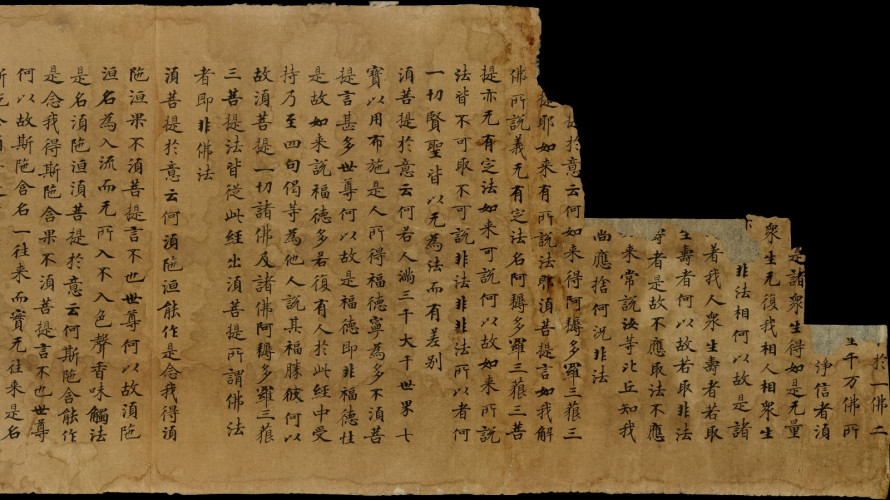 於一佛二
生千万佛所
淨信者須
是諸衆生得如是无量
衆生无復我相人相衆生
非法相何以故是諸
着我人衆生壽者若取
生壽者何以故若取非法
者是故不應取法不應
来常說汝等比丘知我
尚應捨何況非法
提於意云何如来得阿耨多羅三藐三
提耶如来有所說法耶須菩提言如我解
佛所說義无有定法名阿耨多羅三藐三菩
提亦无有定法如来可說何以故如来所說
法皆不可取不可說非法非非法所以者何
一切賢聖皆以无為法而有差别
須菩提於意云何若人滿三千大千世界七
寶以用布施是人所得福德寧為多不須菩
提言甚多世尊何以故是福德即非福德性
是故如来說福德多若復有人於此經中受
持乃至四句偈等為他人說其福勝彼何以
故須菩提一切諸佛及諸佛阿耨多羅三藐
三菩提法皆從此經出須菩提所謂佛法
者即非佛法
須菩提於意云何須陁洹能作是念我得須
陁洹果不須菩提言不也世尊何以故須陁
洹名為入流而无所入不入色聲香味觸法
是名須陁洹須菩提於意云何斯陁含能作
是念我得斯陁含果不須菩提言不也世尊
何以故斯陁含名一往来而實无往来是名